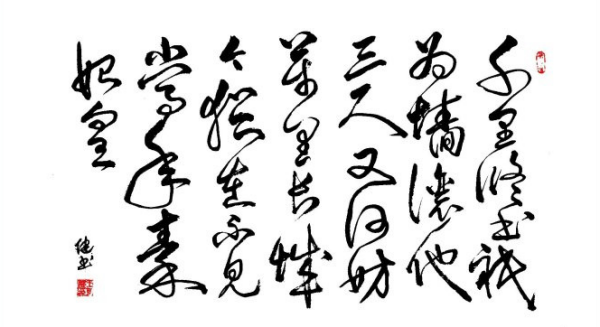 千里修书祇
为墙讓他
三尺又何妨
萬里长城
今猶在不见
當年秦
始皇